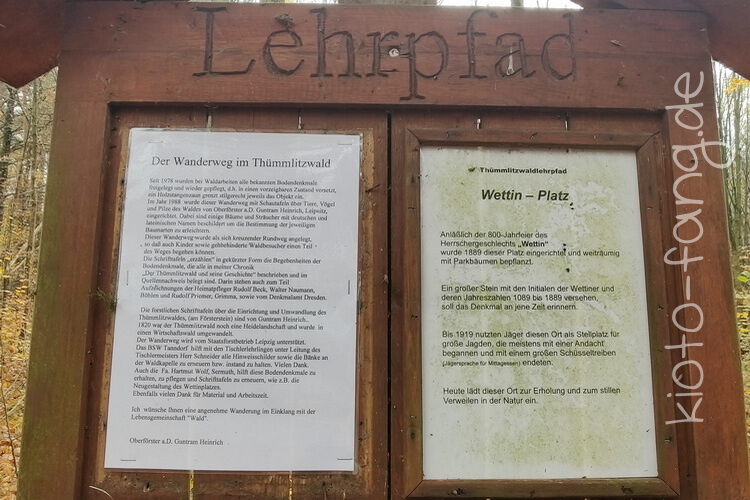 Lehrpfad
Der Wanderweg im Thümmlitzwald
Seit 1978 wurden bei Waldarbeiten alle bekannten Bodendenkmale
freigelegt und wieder gepflegt, d.h. in einen vorzeigbaren Zustand versetzt,
ein Holzstangenzaun grenzt stilgerecht jeweils das Objekt ein.
Im Jahr 1988 wurde dieser Wanderweg mit Schautafeln über Tiere, Vögel
und Pilze des Waldes von Oberförster a.D. Guntram Heinrich, Leipnitz,
eingerichtet. Dabei sind einige Bäume und Sträucher mit deutschen und
lateinischen Namen beschildert um die Bestimmung der jeweiligen
Baumarten zu erleichtern.
Dieser Wanderweg wurde als sich kreuzender Rundweg angelegt,
so daß auch Kinder sowie gehbehinderte Waldbesucher einen Teil
des Weges begehen können.
Die Schrifttafeln „erzählen" in gekürzter Form die Begebenheiten der
Bodendenkmale, die alle in meiner Chronik
„Der Thümmlitzwald und seine Geschichte" beschrieben und im
Quellennachweis belegt sind. Darin stehen auch zum Teil
Aufzeichnungen der Heimatpfleger Rudolf Beck, Walter Naumann,
Böhlen und Rudolf Priemer, Grimma, sowie vom Denkmalamt Dresden.
Die forstlichen Schrifttafeln über die Einrichtung und Umwandlung des
Thümmlitzwaldes, (am Förstersteig) sind von Guntram Heinrich.
1820 war der Thümmlitzwald noch eine Heidelandschaft und wurde in
einen Wirtschaftswald umgewandelt.
Der Wanderweg wird vom Staatsforstbetrieb Leipzig unterstützt.
Das BSW Tanndorf hilft mit den Tischlerlehrlingen unter Leitung des
Tischlermeisters Herr Schneider alle Hinweisschilder sowie die Bänke an
der Waldkapelle zu erneuern bzw. instand zu halten. Vielen Dank.
Auch die Fa. Hartmut Wolf, Sermuth, hilft diese Bodendenkmale zu
erhalten, zu pflegen und Schrifttafeln zu erneuern, wie z.B. die
Neugestaltung des Wettinplatzes.
Ebenfalls vielen Dank für Material und Arbeitszeit.
Ich wünsche Ihnen eine angenehme Wanderung im Einklang mit der
Lebensgemeinschaft "Wald".
Oberförster a.D. Guntram Heinrich
Thümmlitzwaldlehrpfad
Wettin – Platz
Anläßlich der 800-Jahrfeier des
Herrschergeschlechts „Wettin"
wurde 1889 dieser Platz eingerichtet und weiträumig
mit Parkbäumen bepflanzt.
Ein großer Stein mit den Initialen der Wettiner und
deren Jahreszahlen 1089 bis 1889 versehen,
soll das Denkmal an jene Zeit erinnern.
Bis 1919 nutzten Jäger diesen Ort als Stellplatz für
große Jagden, die meistens mit einer Andacht
begannen und mit einem großen Schüsseltreiben
(Jägersprache für Mittagessen) endeten.
Heute lädt dieser Ort zur Erholung und zum stillen
Verweilen in der Natur ein.
kioto-fang.de